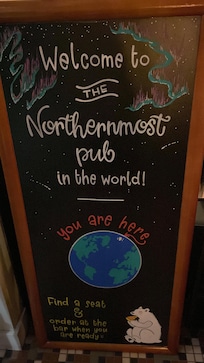 Welcome to
THE
Northernmost
pub
in the world!
you are here
Find a seat
&
order at the
bar when you
are ready